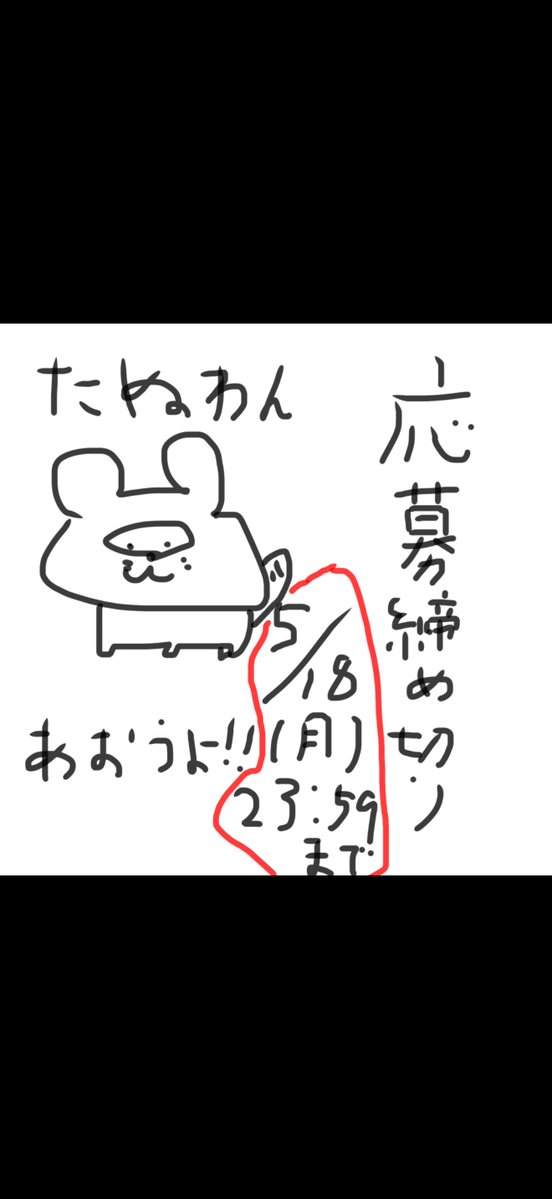 応募締め切り
たぬわん
5/18
(月)
23:59
まで
あおうよ!!